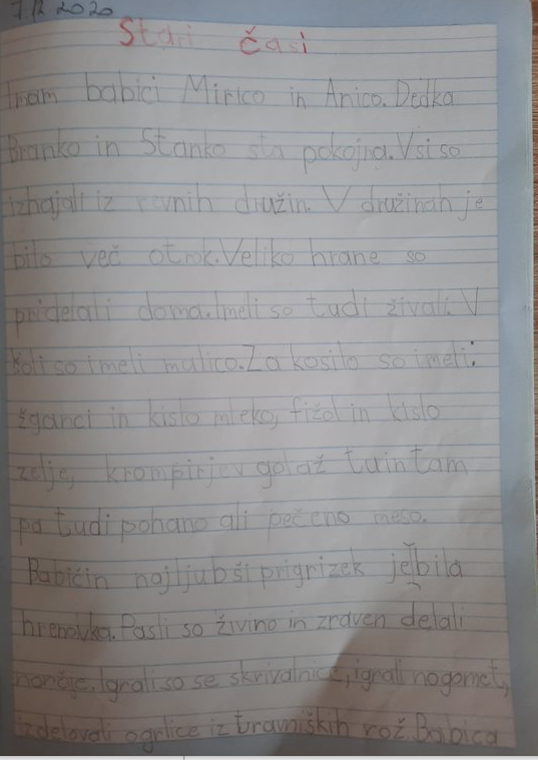 7.12.2020
Stari časi
Imam babici Mirico in Anico. Dedka
Branko in Stanko sta pokojna. Vsi so
izhajali iz revnih družin. V družinah je
bilo več otrok. Veliko hrane so
pridelali doma. Imeli so tudi živali. V
šoli so imeli malico. Za kosilo so imeli:
žganci in kislo mleko, fižol in kislo
zelje, krompirjev golaž tu in tam
pa tudi pohano ali pečeno meso.
Babičin najljubši prigrizek je bila
hrenovka. Pasli so živino in zraven delali
norčije. Igrali so se skrivalnice, igrali nogomet,
izdelovali ogrlice iz travniških rož. Babica